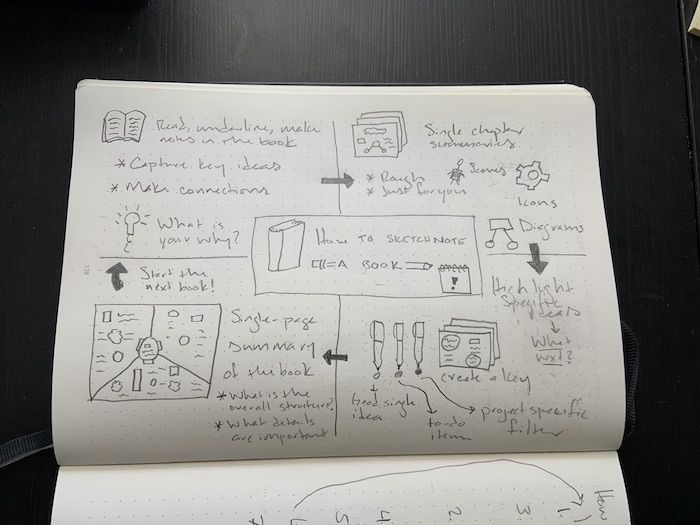 Read, underline, make
notes in the book
* Capture key ideas
* Make connections
What is
your why?
Single chapter
summaries
* Rough
* Just for you
Scenes
Icons
Diagrams
HOW TO SKETCHNOTE
A BOOK
Highlight
specific
ideas
What
next?
create a key
Good single
idea
to-do
item
project specific
filter
Single-page
summary
of the book
* What is the
overall structure?
* What details
are important
Start the
next book!
128
How
1.
2.
3.
4.
5.